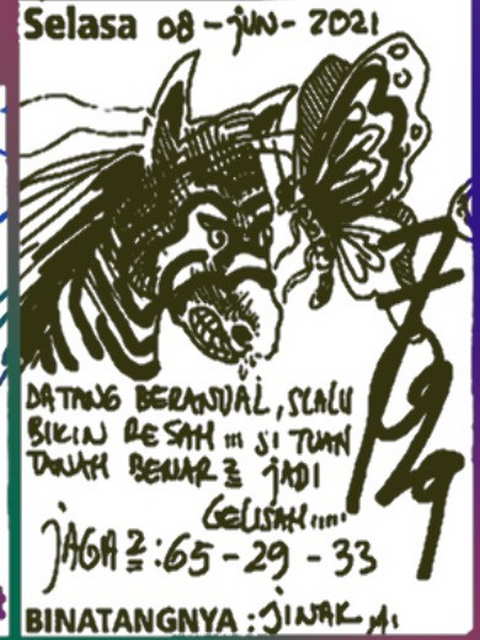 Selasa 08 - JUN - 2021
DATANG BERANUAL, SLALU
BIKIN RESAH ... SI TUAN
TANAH BENAR 2 JADI
GELISAH.....
JAGA 2 : 65 - 29 - 33
BINATANGNYA : JINAK